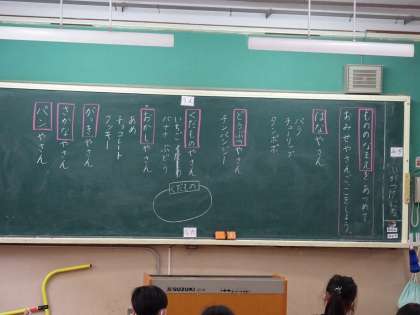 ものの名まえをあつめて
おみせやさんごっこをしよう。
はなやさん
バラ
チューリップ
タンポポ
どうぶつやさん
チンパンジー
くだものやさん
いちご
バナナ ぶどう
くだもの
おかしやさん
あめ
チョコレート
クッキー
がっきやさん
さかなやさん
パンやさん
SUZUKI